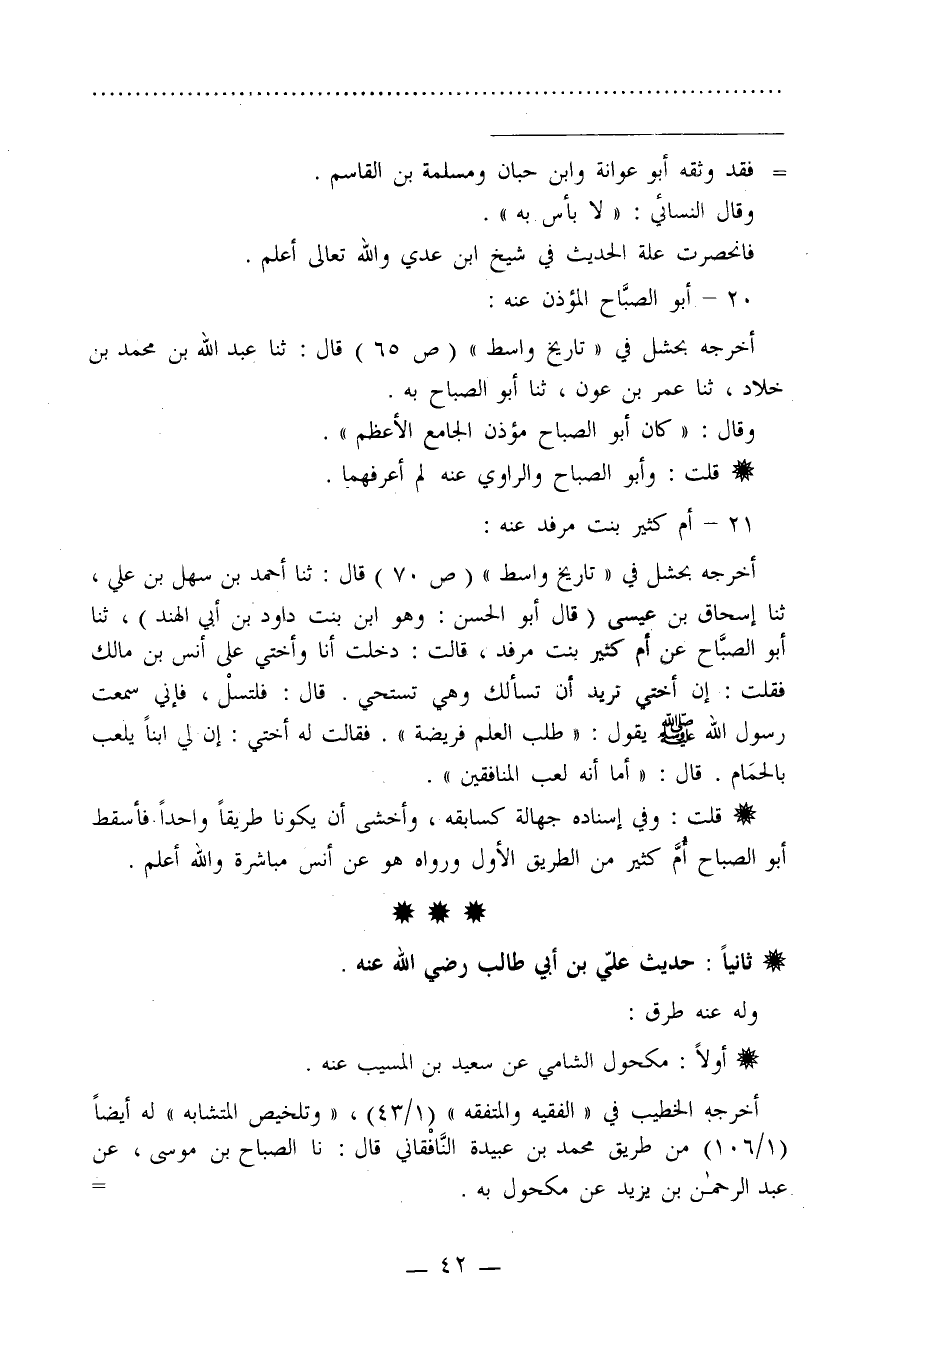 = فقد وثقه أبو عوانة وابن حبان ومسلمة بن القاسم .
وقال النسائي : « لا بأس به » .
فانحصرت علة الحديث في شيخ ابن عدي والله تعالى أعلم .
٢٠ – أبو الصبَّاح المؤذن عنه :
أخرجه بحشل في « تاريخ واسط » ( ص ٦٥ ) قال : ثنا عبد الله بن محمد بن
خلاد ، ثنا عمر بن عون ، ثنا أبو الصباح به .
وقال : « كان أبو الصباح مؤذن الجامع الأعظم » .
✹ قلت : وأبو الصباح والراوي عنه لم أعرفهما .
٢١ – أم كثير بنت مرفد عنه :
أخرجه بحشل في « تاريخ واسط » ( ص ٧٠ ) قال : ثنا أحمد بن سهل بن علي ،
ثنا إسحاق بن عيسى ( قال أبو الحسن : وهو ابن بنت داود بن أبي الهند ) ، ثنا
أبو الصبَّاح عن أم كثير بنت مرفد ، قالت : دخلت أنا وأختي على أنس بن مالك
فقلت : إن أختي تريد أن تسألك وهي تستحي . قال : فلتسلْ ، فإني سمعت
رسول الله ﷺ يقول : « طلب العلم فريضة » . فقالت له أختي : إن لي ابناً يلعب
بالحمَام . قال : « أما أنه لعب المنافقين » .
✹ قلت : وفي إسناده جهالة كسابقه ، وأخشى أن يكونا طريقاً واحداً فأسقط
أبو الصباح أُمَّ كثير من الطريق الأول ورواه هو عن أنس مباشرة والله أعلم .
✹ ✹ ✹
✹ ثانياً : حديث عليّ بن أبي طالب رضي الله عنه .
وله عنه طرق :
✹ أولاً : مكحول الشامي عن سعيد بن المسيب عنه .
أخرجه الخطيب في « الفقيه والمتفقه » (٤٣/١) ، « وتلخيص المتشابه » له أيضاً
(١٠٦/١) من طريق محمد بن عبيدة النَّافْقاني قال : نا الصباح بن موسى ، عن
عبد الرحمٰن بن يزيد عن مكحول به . =
— ٤٢ —